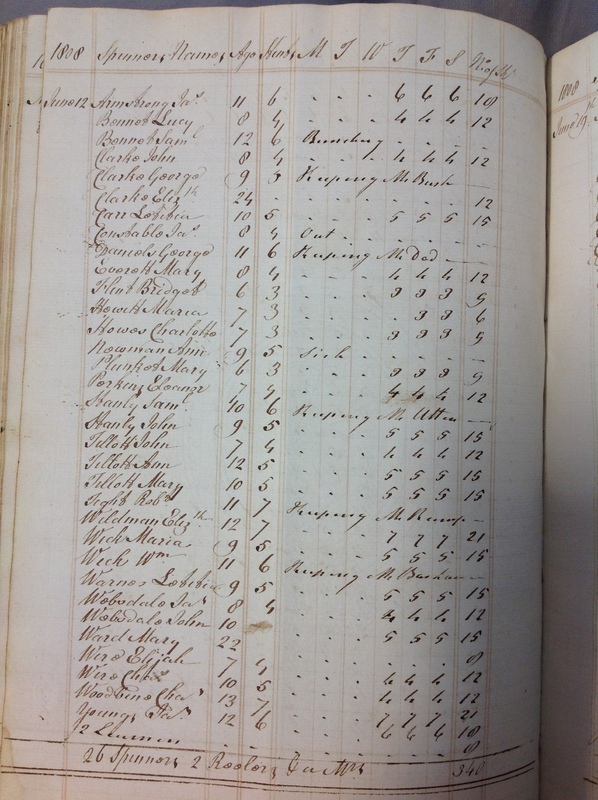 1808 Spinners Names Age Hanks M T W T F S No of Sk
June 12 Armstrong Jas 11 6 - - - 6 6 6 18
Bennet Lucy 8 4 - - - 4 4 4 12
Bennet Saml 12 6 - - -
Clarke John 8 4 - - - 4 4 4 12
Clarke George 9 5 Keeping Mr Bush
Clarke Elizth 24 - - - - 12
Carr Letitia 10 5 - - - 5 5 5 15
Constable Jas 8 4 Out - - - - -
Daniels George 11 6 Keeping Mr Dod
Everett Mary 8 4 - - - 4 4 4 12
Flint Bridget 6 3 - - - 3 3 3 9
Howett Maria 7 3 - - - - 3 3 6
Howes Charlotte 7 3 - - - 3 3 3 9
Newman Ann 9 5 Sick - - - - -
Plunket Mary 6 3 - - - 3 3 3 9
Perkins Eleanor 7 4 - - - 4 4 4 12
Stanly Saml 10 6 Keeping Mr Utten
Stanly John 9 5 - - - 5 5 5 15
Tillott John 7 4 - - - 4 4 4 12
Tillott Ann 12 5 - - - 5 5 5 15
Tillott Mary 10 5 - - - 5 5 5 15
Tight Robt 11 7 Keeping Mr
Wildman Elizth 12 7 - - - 7 7 7 21
Wick Maria 9 5 - - - 5 5 5 15
Wick Wm 11 6 Keeping Mr
Warnes Letitia 9 5 - - - 5 5 5 15
Websdale Jas 8 4 - - - 4 4 4 12
Websdale John 10 - - - 5 5 5 15
Ward Mary 22 - - - - - - 8
Wire Elijah 7 4 - - - 4 4 4 12
Wire 10 5 - - - 4 4 4 12
Woodbine Chas 13 7 - - - 7 7 7 21
Young Jas 12 6 - - - 6 6 6 18
2 - - - - - - 8
26 Spinners 2 Reelers 348
1808
June 19